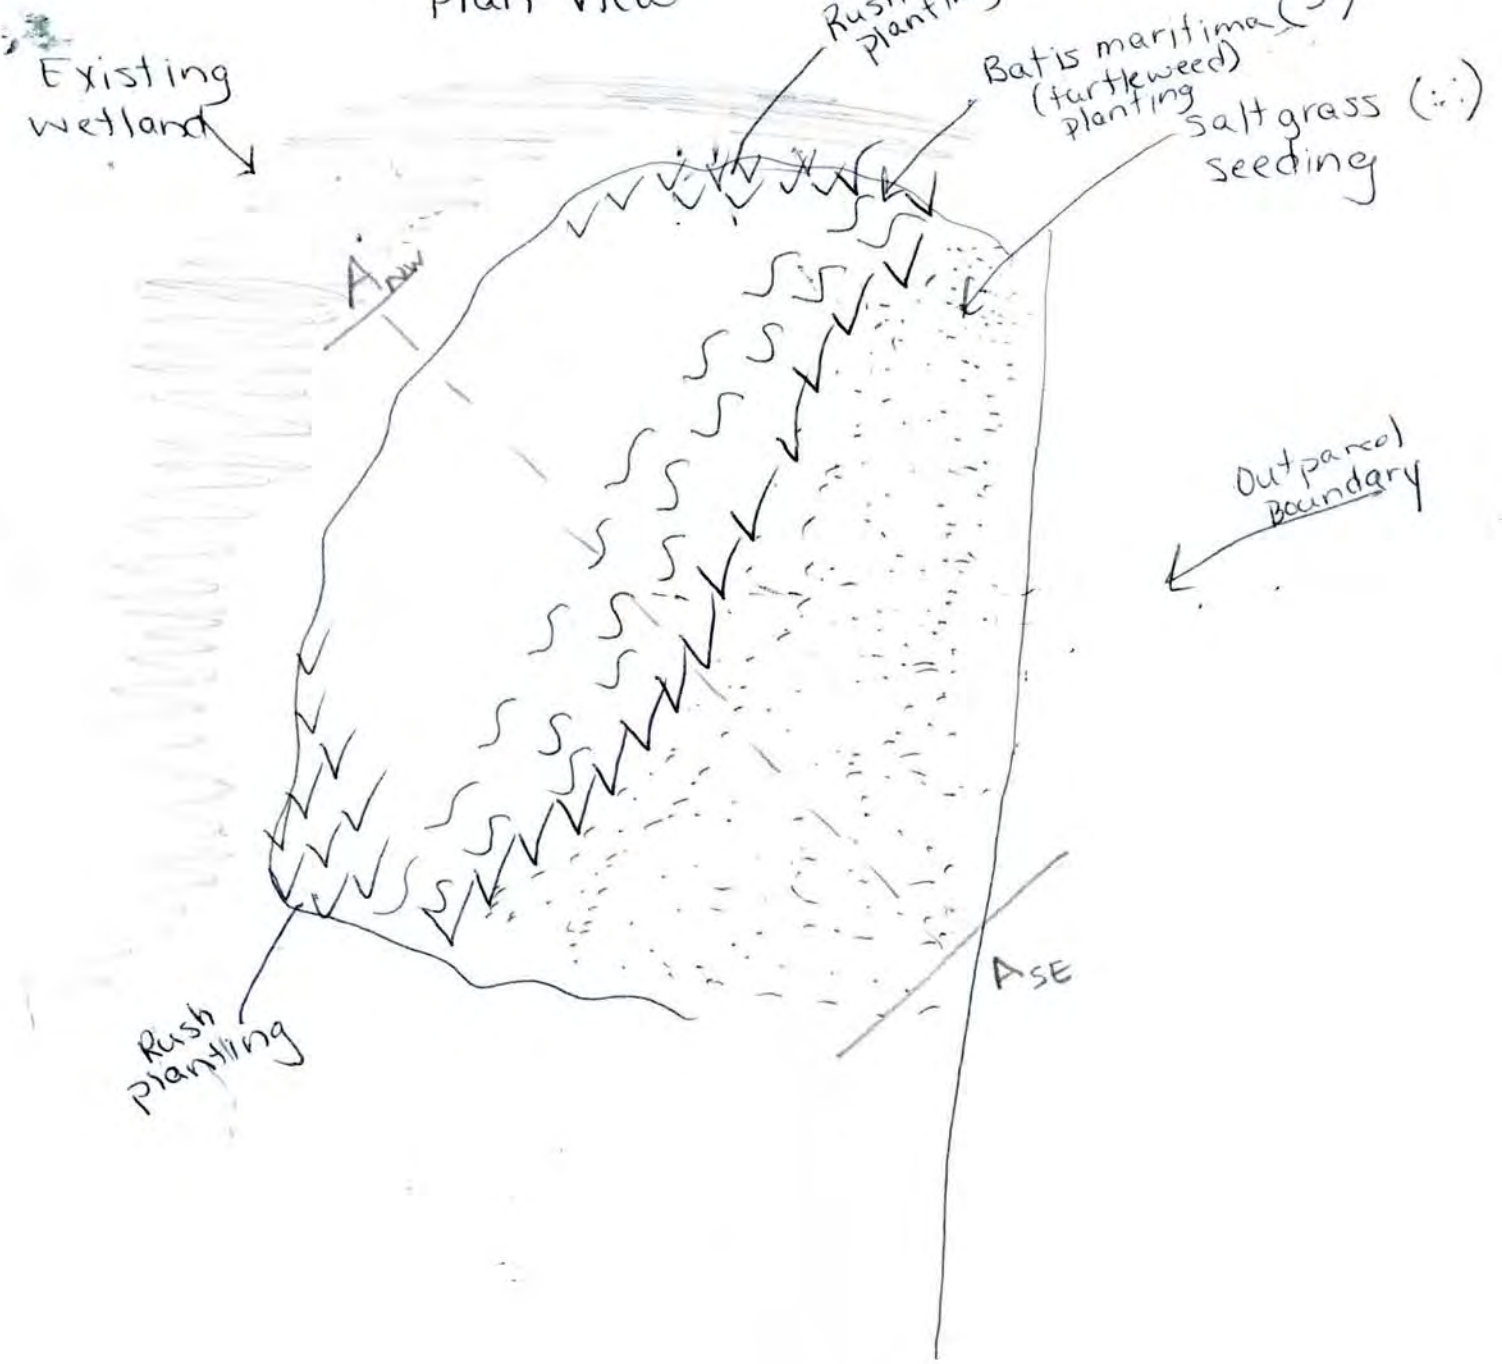 Plan View
Rush
planting
Batis maritima (S)
(turtleweed)
planting
Salt grass (∴)
seeding
Existing
wetland
A NW
Outparcel
Boundary
A SE
Rush
plantling